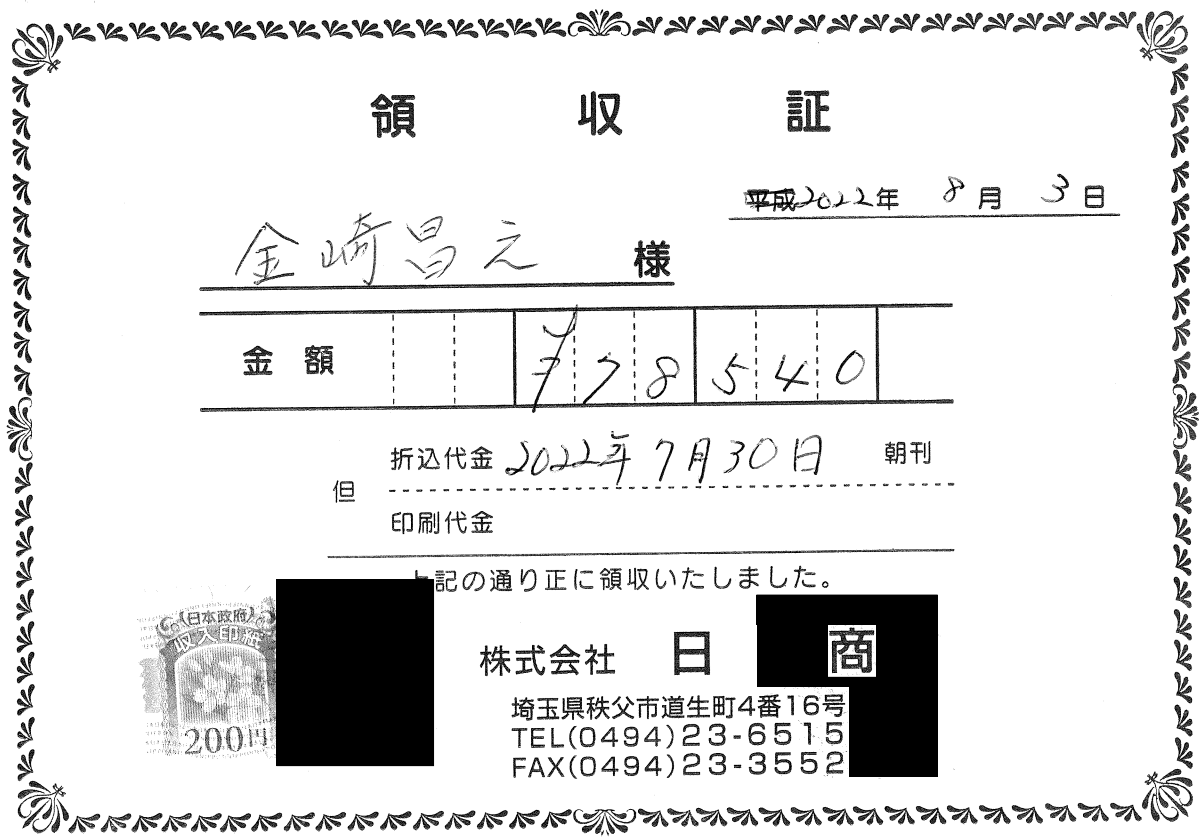 領収証
平成2022年 8月 3日
金崎昌元 様
金額 ¥78540
折込代金 2022年7月30日 朝刊
但
印刷代金
上記の通り正に領収いたしました。
日本政府
収入印紙
200円
株式会社 日 商
埼玉県秩父市道生町4番16号
TEL(0494)23-6515
FAX(0494)23-3552